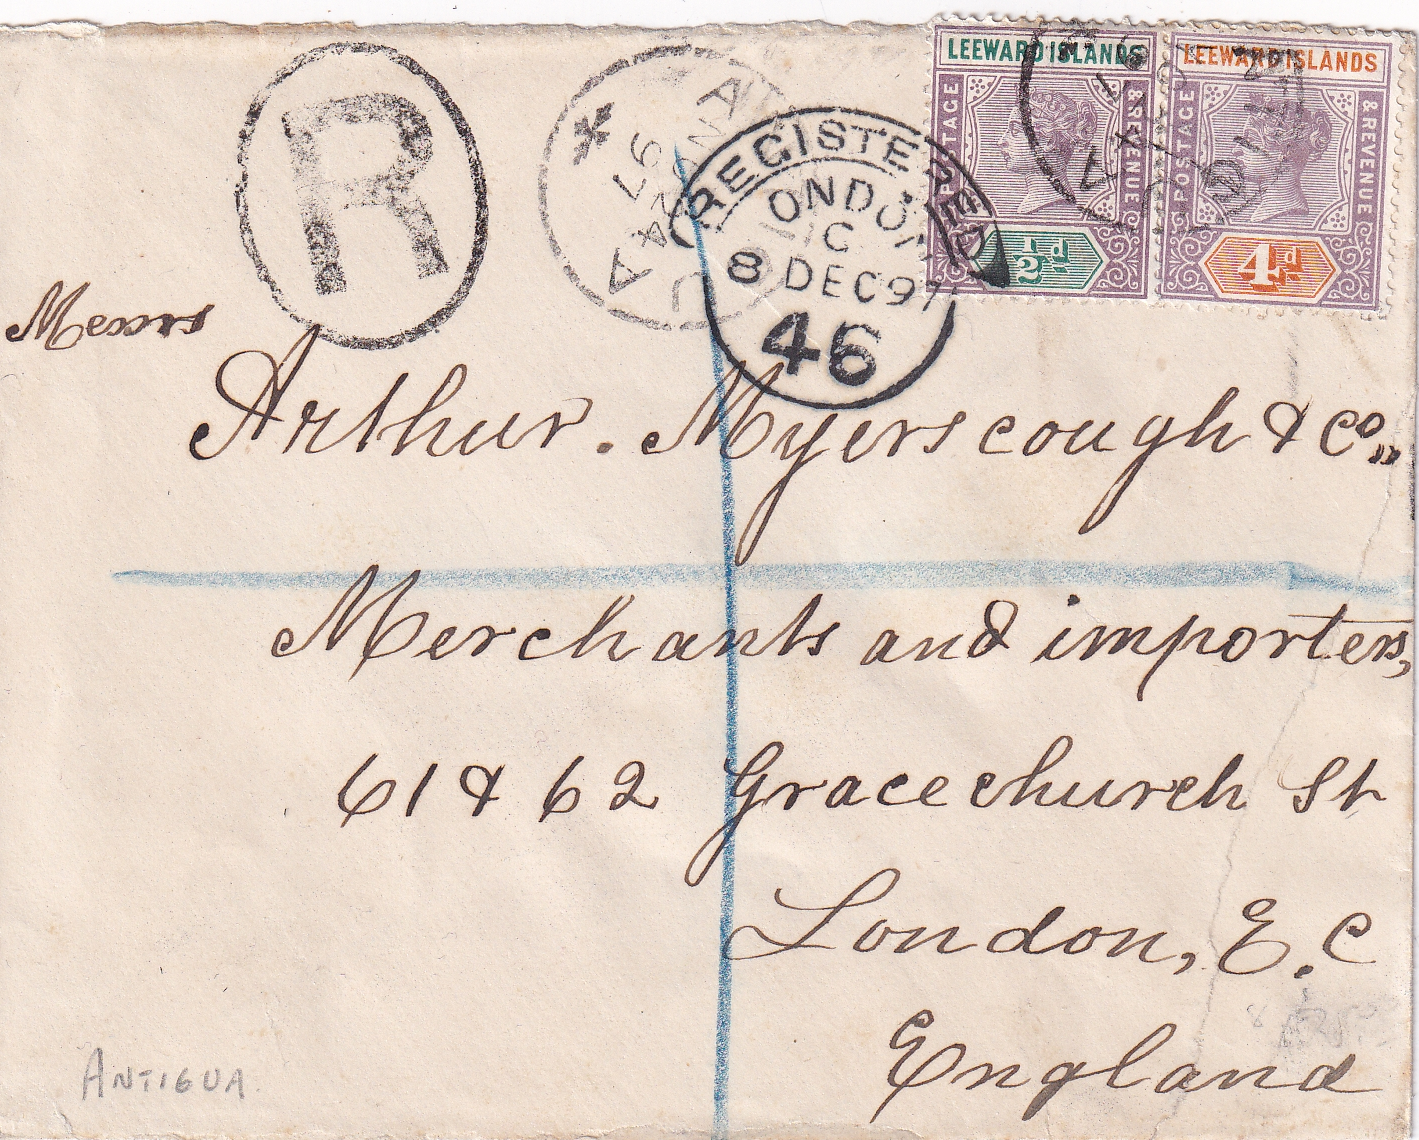 LEEWARD ISLANDS
POSTAGE
& REVENUE
½d
LEEWARD ISLANDS
POSTAGE
& REVENUE
4d
R
REGISTERED
LONDON
C
8 DEC 97
46
97
Messrs
Arthur. Myerscough & Co.,
Merchants and importers,
61 & 62 Gracechurch St
London, E.C
England
ANTIGUA